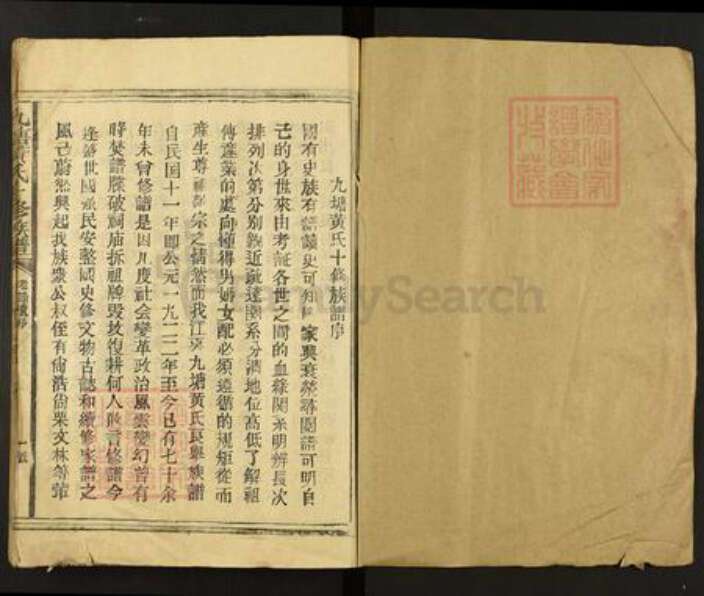 九塘黄氏十修族譜序
國有史族有譜讀史可知國家興衰榮辱閱譜可明自
己的身世來由考証各世之間的血緣関系明辨長次
排列次第分别親近疏遠関系分清地位高低了解祖
傳產業的處向懂得男婚女配必須遵循的規矩從而
產生尊 宗之情然而我江 九塘黄氏民 族譜
自民国十一年即公元一九二二年至今已有七十余
年未曾修譜是因几度社会變革政治風雲變幻曾有
時焚譜牒破祠庙拆祖牌毁坟復耕何人敢言修譜今
逢盛世國泰民安整國史修文物古誌和續修家譜之
風已蔚然興起我族衆公叔侄有尙浩尙荣文林等輩
九塘黄氏十修族譜
一
FamilySearch